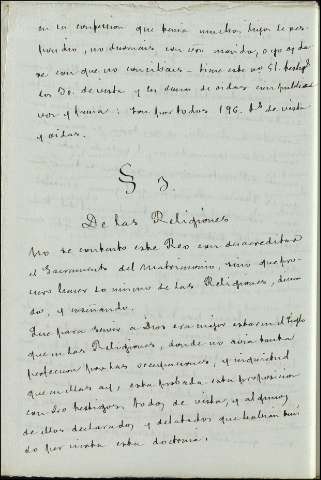 en la confession que tenia muchos hijos le res-
pondio, no duermais con con marido, o yo ay da
re con que no concibais - tiene este no 51. testigs
los 30. de vista y los demas de oidas con publica
voz y fama: son por todos 196. ts de vista
y oidas.
§ 3.
De las Religiones
No se contento este Reo con desacreditar
el Sacramento del Matrimonio, sino que pro-
curo hacer lo mismo de las Religiones, dicien
do, y enseñando.
Que para servir a Dios era mejor estar en el siglo
que en las Religiones, donde no avia tanta
perfeccion por las occupaciones, y inquietud
que en ellas ay, esta probada esta proposicion
con 20 testigos, todos de vista, y algunos
de ellos declarados y delatados que havian
do por cierta esta doctrina.